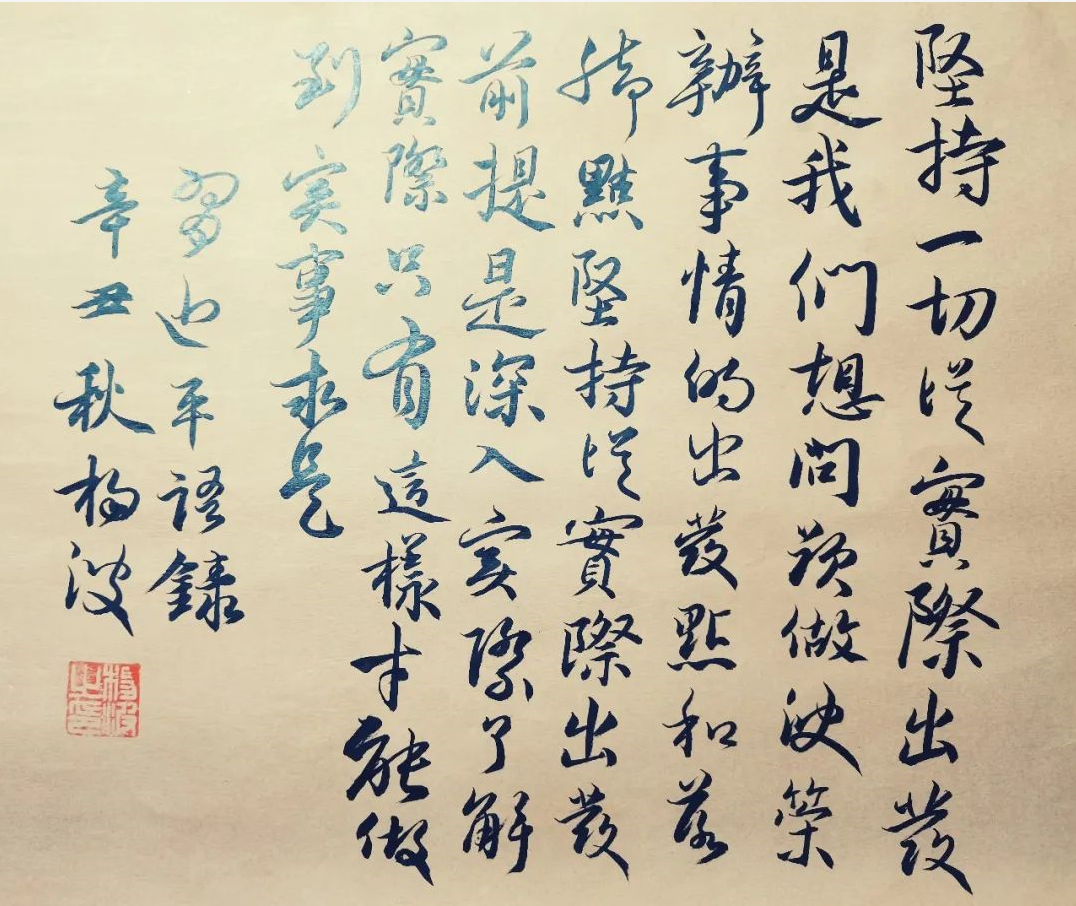 堅持一切從實際出發
是我們想問題做决策
辦事情的出發點和落
腳點堅持從實際出發
前提是深入实際了解
實際只有這樣才能做
到实事求是
習近平語錄
辛丑秋楊波
楊波之印